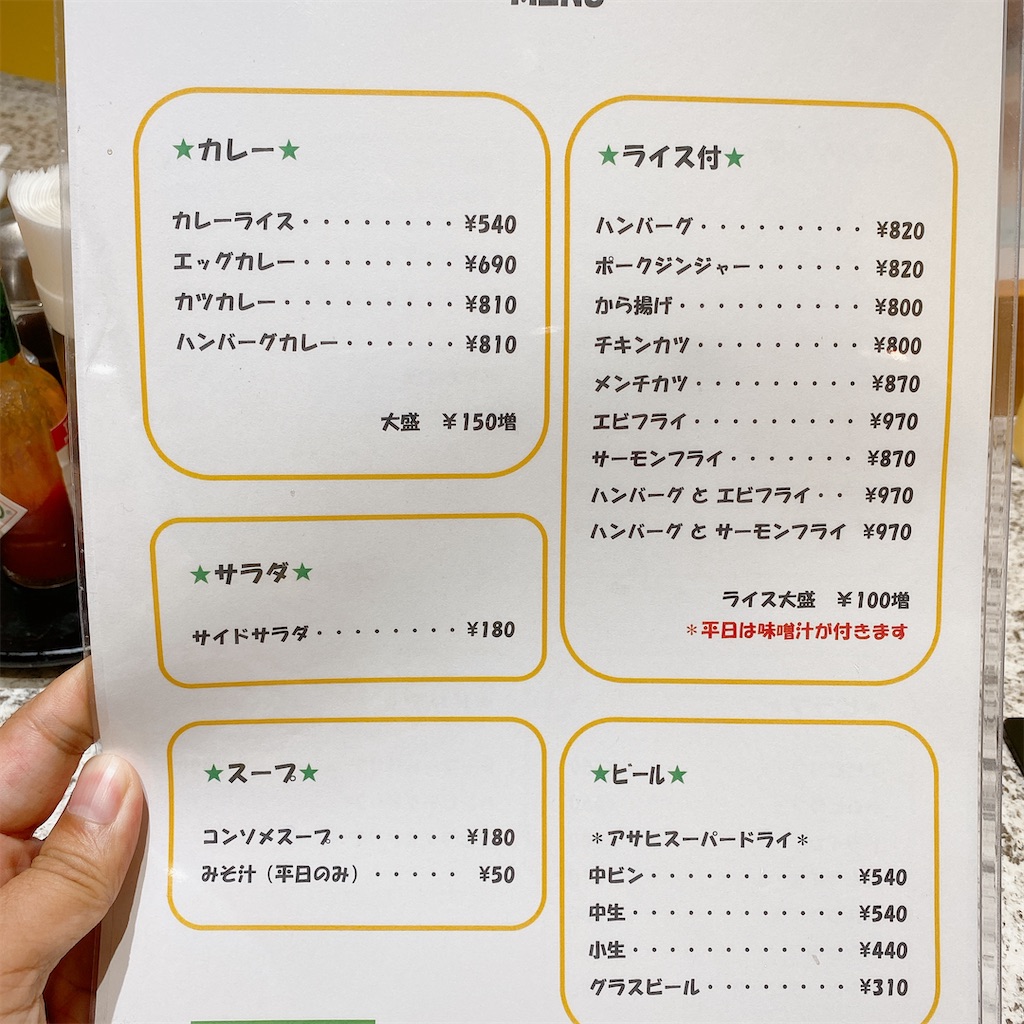 MENU
★カレー★
カレーライス・・・・・・・・¥540
エッグカレー・・・・・・・・¥690
カツカレー・・・・・・・・・¥810
ハンバーグカレー・・・・・・¥810
大盛 ¥150増
★サラダ★
サイドサラダ・・・・・・・・¥180
★スープ★
コンソメスープ・・・・・・・¥180
みそ汁（平日のみ）・・・・・ ¥50
★ライス付★
ハンバーグ・・・・・・・・・ ¥820
ポークジンジャー・・・・・・ ¥820
から揚げ・・・・・・・・・・ ¥800
チキンカツ・・・・・・・・・ ¥800
メンチカツ・・・・・・・・・ ¥870
エビフライ・・・・・・・・・ ¥970
サーモンフライ・・・・・・・ ¥870
ハンバーグ と エビフライ・・ ¥970
ハンバーグ と サーモンフライ ¥970
ライス大盛 ¥100増
＊平日は味噌汁が付きます
★ビール★
＊アサヒスーパードライ＊
中ビン・・・・・・・・・・・ ¥540
中生・・・・・・・・・・・・ ¥540
小生・・・・・・・・・・・・ ¥440
グラスビール・・・・・・・・ ¥310